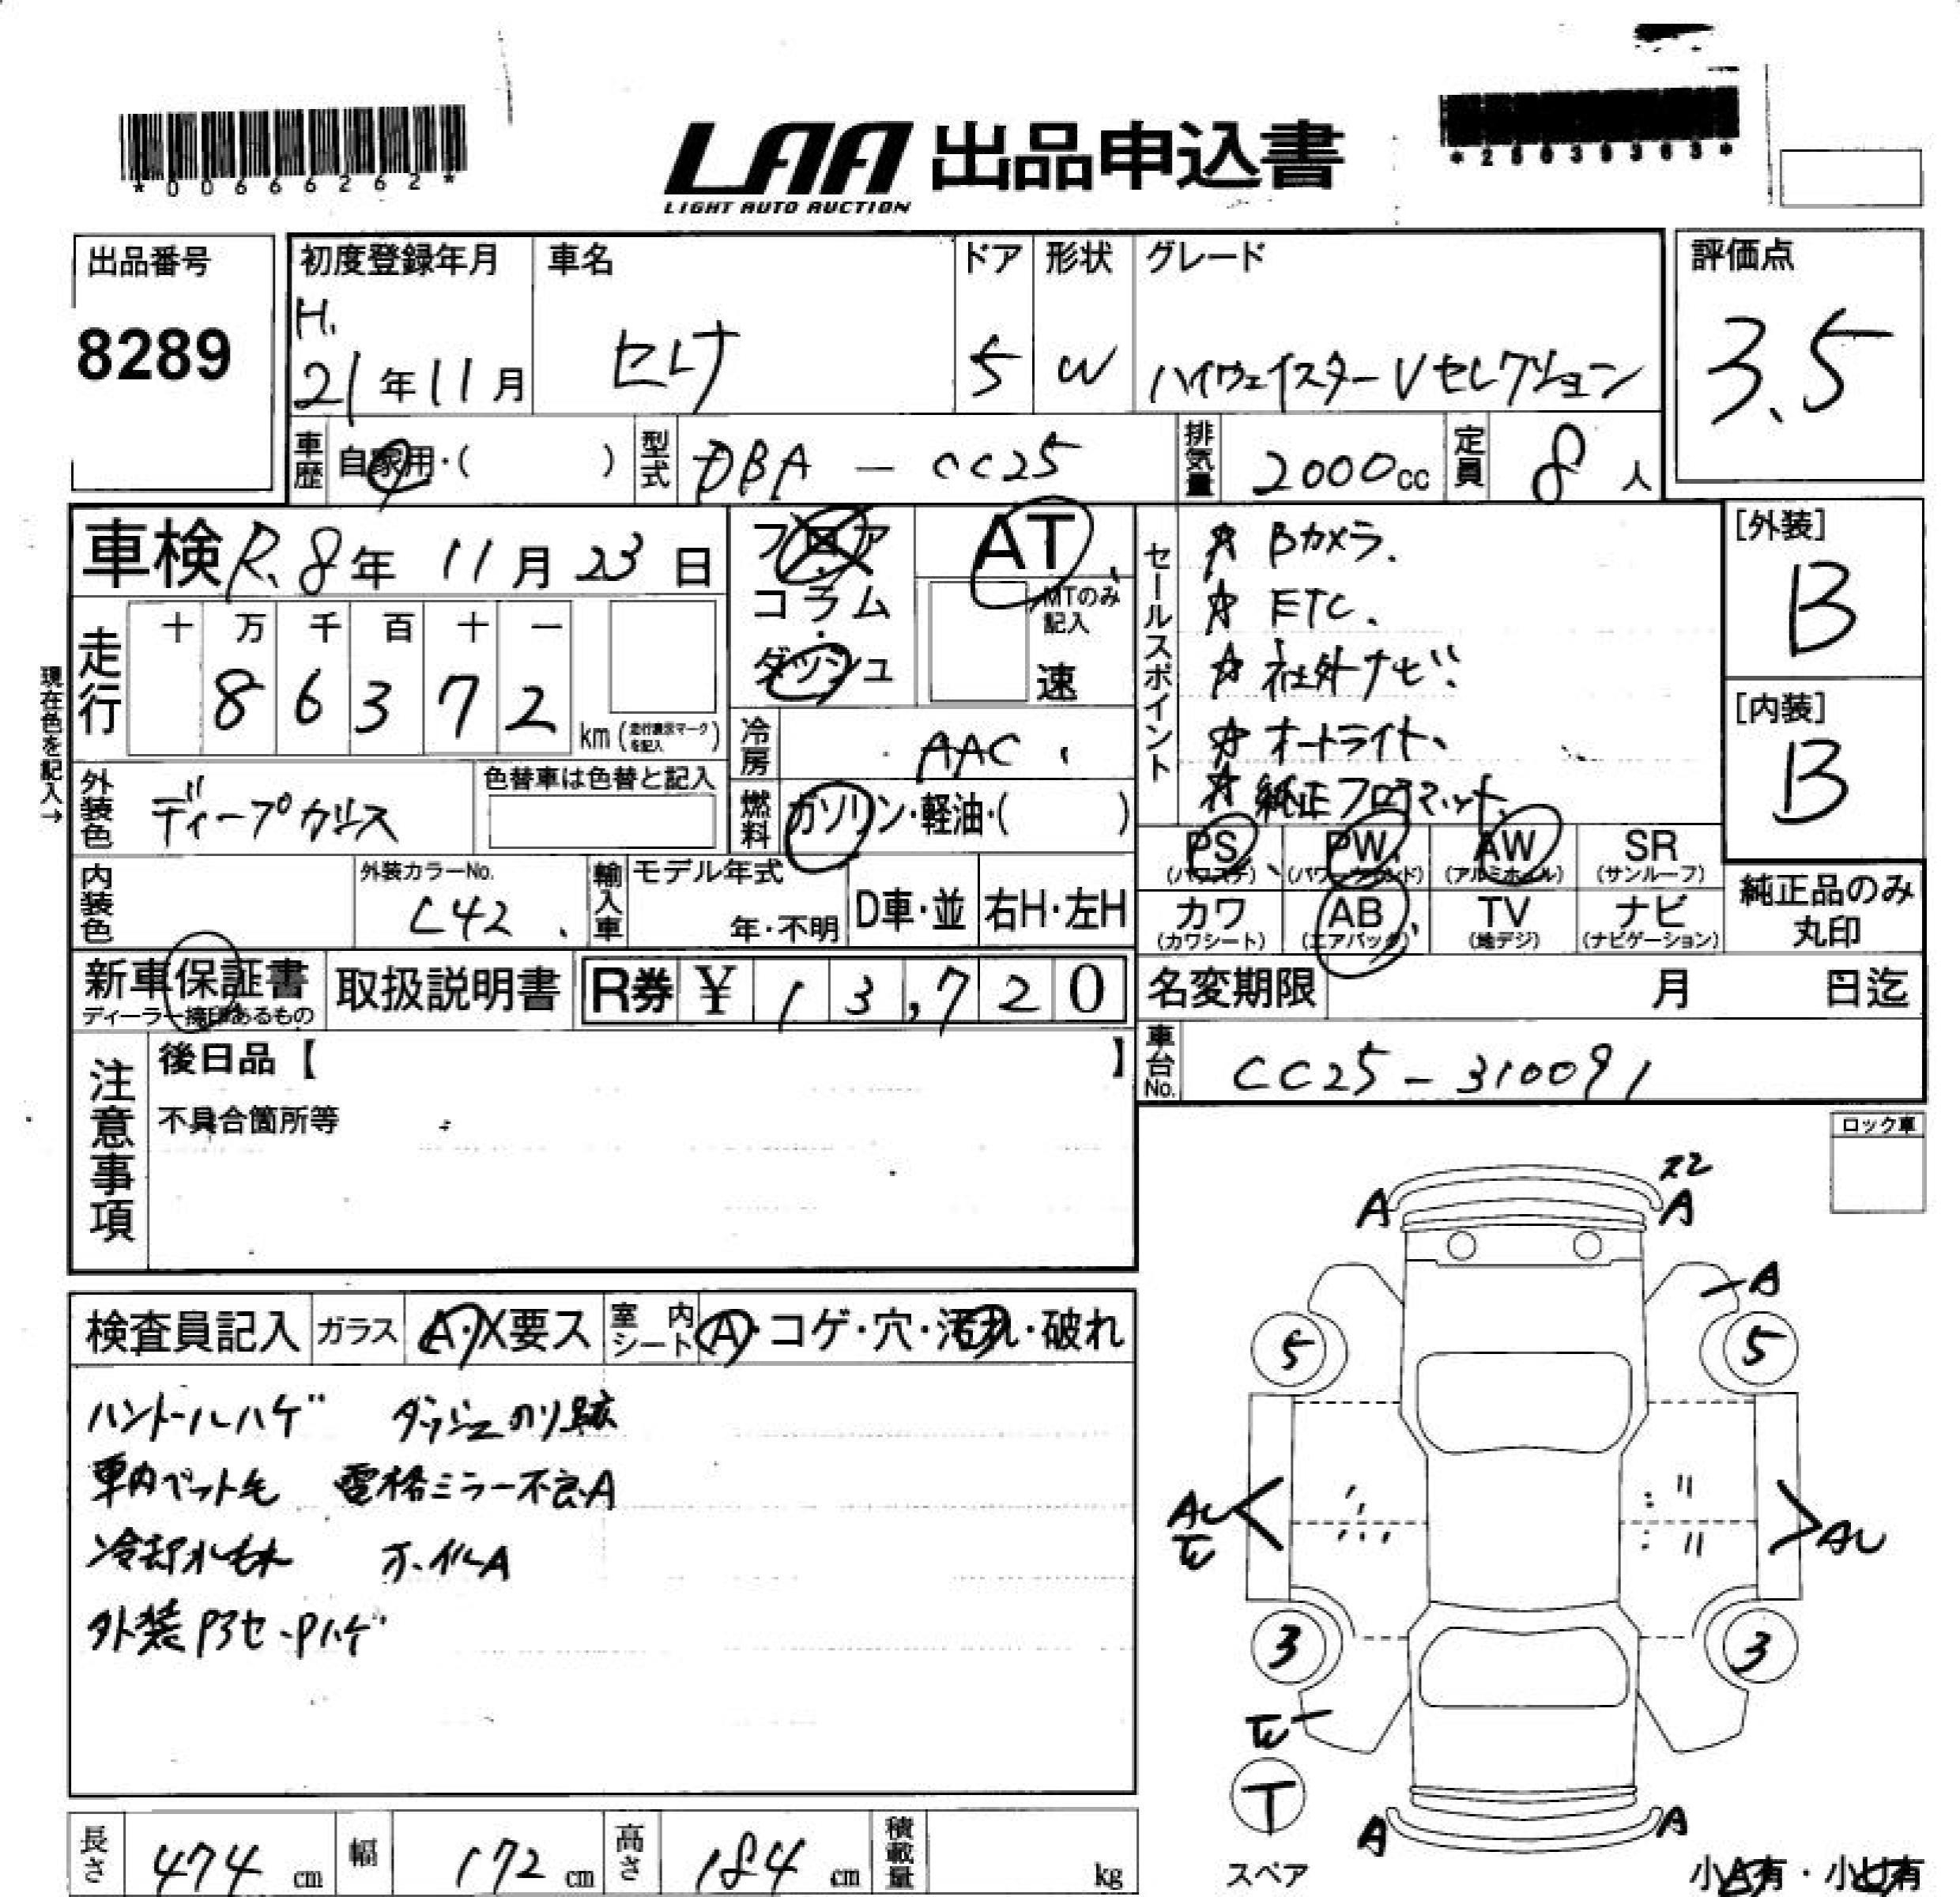 *00666262*
LAA 出品申込書
LIGHT AUTO AUCTION
*25039363*
出品番号
8289
初度登録年月
H.
21年11月
車名
セレナ
ドア
5
形状
W
グレード
ハイウェイスターVセレクション
評価点
3.5
車歴
自家用・( )
型式
DBA - CC25
排気量
2000cc
定員
8人
車検 R.8年 11月 23日
フロア
コラム
ダッシュ
AT
MTのみ記入
速
セールスポイント
☆ Bカメラ.
☆ ETC.
☆ 社外ナビ.
☆ オートライト、
☆ 純正フロアマット、
[外装]
B
[内装]
B
現在色を記入→
走行
十 万 千 百 十 一
8 6 3 7 2
km (走行表示マークを記入)
冷房
AAC
外装色
ディープカリス
色替車は色替と記入
燃料
ガソリン・軽油・( )
PS (パワステ)
PW (パワーウィンド)
AW (アルミホイル)
SR (サンルーフ)
カワ (カワシート)
AB (エアバック)
TV (地デジ)
ナビ (ナビゲーション)
純正品のみ
丸印
内装色
外装カラーNo.
L42
輸入車
モデル年式
年・不明
D車・並
右H・左H
新車保証書
ディーラー捺印あるもの
取扱説明書
R券 ¥ 13,720
名変期限 月 日迄
車台No.
CC25-310091
注意事項
後日品【 】
不具合箇所等
ロック車
検査員記入
ガラス
A・X要ス
室内シート
A・コゲ・穴・汚れ・破れ
ハンドルハゲ ダッシュのリ跡
車内ペット毛 電格ミラー不良A
冷却水もれ ホイルA
外装アヲセ・Pハゲ
ス2
A A
A
5 5
AU
AU
3 3
T
A A
スペア
小A有・小U有
長さ 474 cm
幅 172 cm
高さ 184 cm
積載量 kg